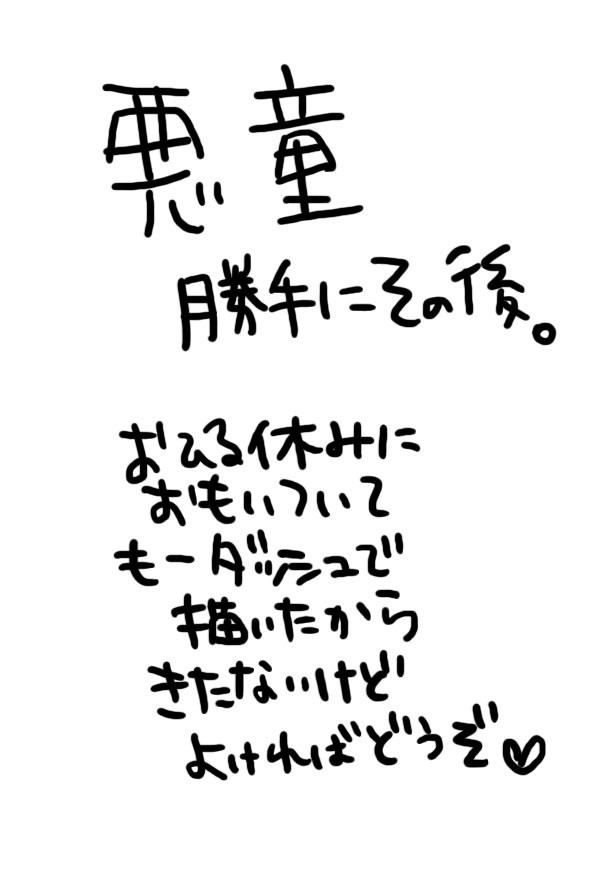 悪童
勝手にその後。
おひる休みに
おもいついて
もーダッシュで
描いたから
きたないけど
よければどうぞ♡